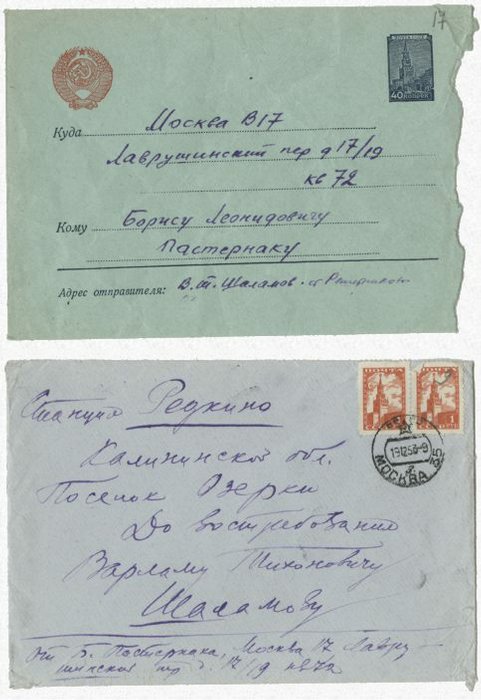 17
ПОЧТА СССР
40 КОПЕЕК
Куда Москва В17
Лаврушинский пер д 17/19
кв 72
Кому Борису Леонидовичу
Пастернаку
Адрес отправителя: В.Т. Шаламов - ст Решетниково
ПОЧТА
3
1
МОСКВА
191253-9
Станция Редкино
Калининской обл.
Поселок Озерки
До востребования
Варламу Тихоновичу
Шаламову
от Б. Пастернака, Москва 17 Лавру-
шинский пер д. 17/19 кв 72